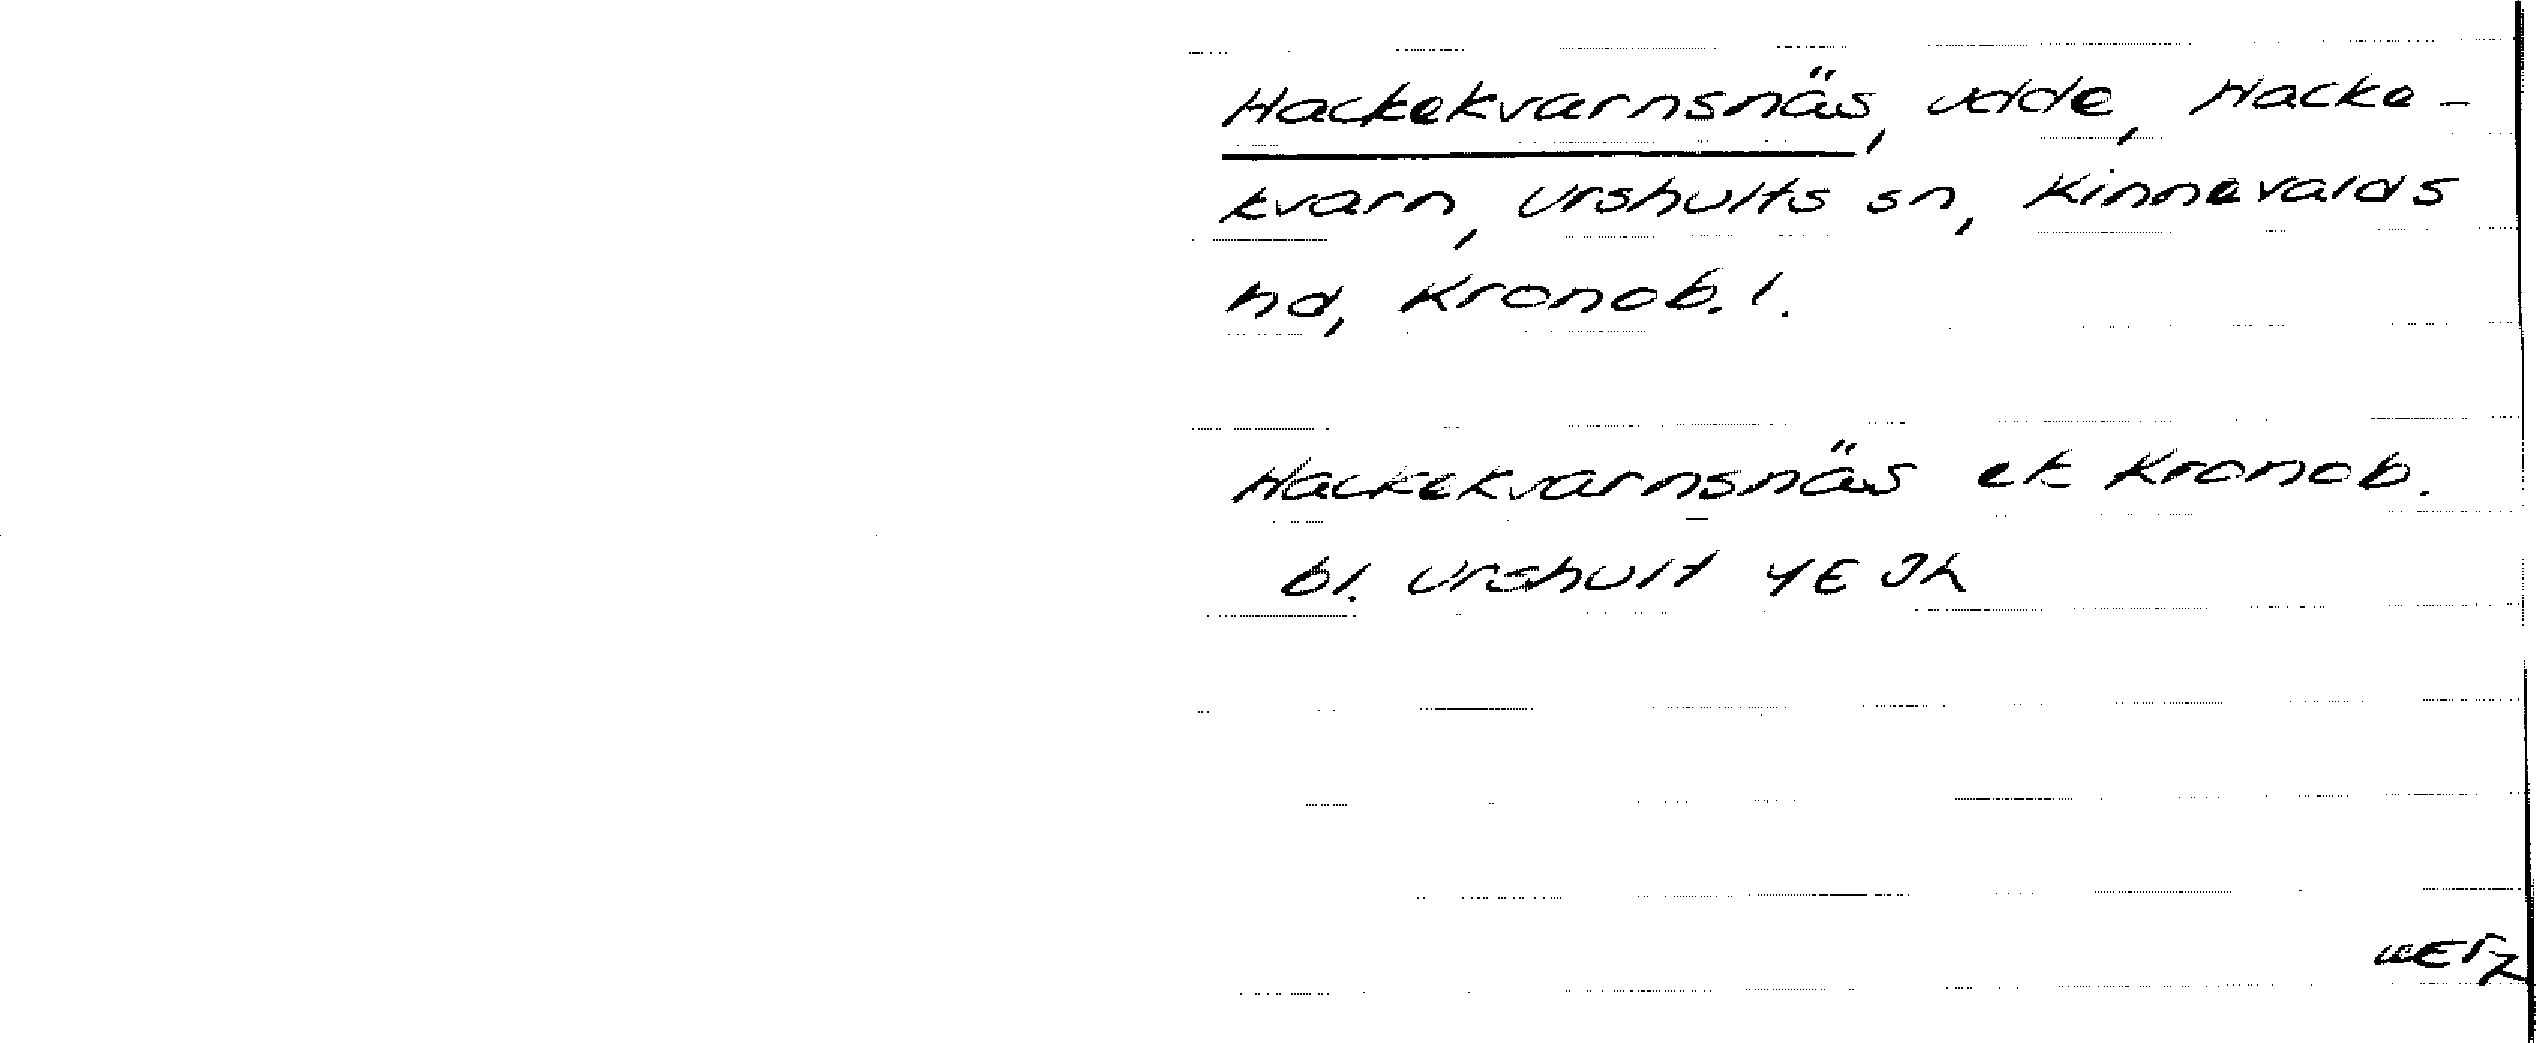 Hackekvarnsnäs, udde, Hacke-
kvarn, Urshults sn, Kinnevalds
hd, Kronob. l.
Hackekvarnsnäs ek Kronob.
bl. Urshult 4E